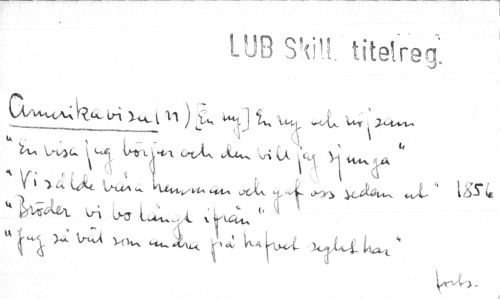 LUB Skill. titelreg.
Amerikavisa (11) [En ny] En ny och nöjsam
"En visa jag börjar och den vill jag sjunga"
"Vi sålde våra hemman och gaf oss sedan ut" 1856
"Bröder vi bo långt ifrån"
"Jag så väl som andra på hafvet seglat har"
forts.